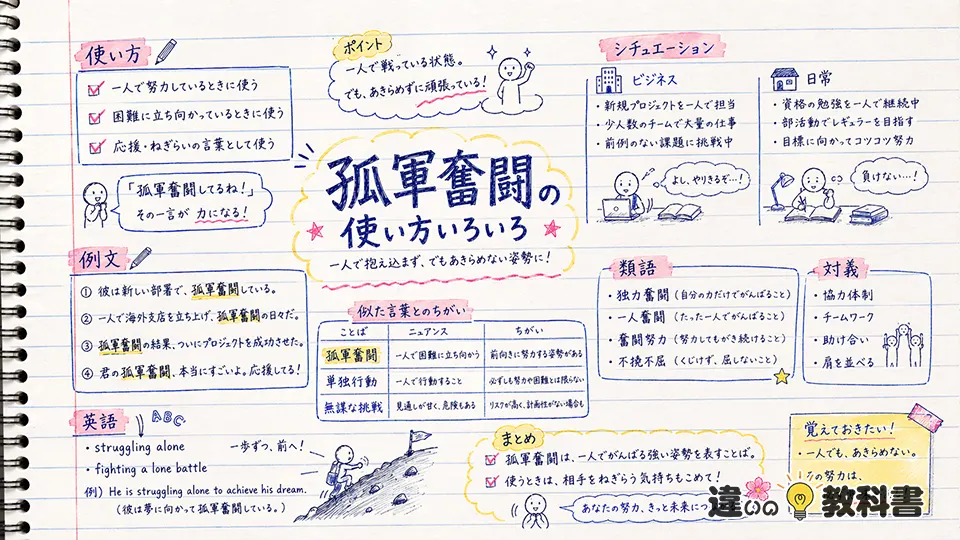 使い方
一人で努力しているときに使う
困難に立ち向かっているときに使う
応援・ねぎらいの言葉として使う
「孤軍奮闘してるね!」
その一言が 力になる!
ポイント
一人で戦っている状態。
でも、あきらめずに頑張っている!
孤軍奮闘の
使い方いろいろ
一人で抱え込まず、でもあきらめない姿勢に!
シチュエーション
ビジネス
・新規プロジェクトを一人で担当
・少人数のチームで大量の仕事
・前例のない課題に挑戦中
よし、やりきるぞ…!
日常
・資格の勉強を一人で継続中
・部活動でレギュラーを目指す
・目標に向かってコツコツ努力
負けない…!
例文
① 彼は新しい部署で、孤軍奮闘している。
② 一人で海外支店を立ち上げ、孤軍奮闘の日々だ。
③ 孤軍奮闘の結果、ついにプロジェクトを成功させた。
④ 君の孤軍奮闘、本当にすごいよ。応援してる!
似た言葉とのちがい
ことば ニュアンス ちがい
孤軍奮闘 一人で困難に立ち向かう 前向きに努力する姿勢がある
単独行動 一人で行動すること 必ずしも努力や困難とは限らない
無謀な挑戦 見通しが甘く、危険もある リスクが高く、計画性がない場合も
類語
・独力奮闘(自分の力だけでがんばること)
・一人奮闘(たった一人でがんばること)
・奮闘努力(努力してもがき続けること)
・不撓不屈(くじけず、屈しないこと)
対義
・協力体制
・チームワーク
・助け合い
・肩を並べる
英語
ABC
・struggling alone
・fighting a lone battle
例) He is struggling alone to achieve his dream.
(彼は夢に向かって孤軍奮闘している。)
一歩ずつ、前へ!
まとめ
孤軍奮闘は、一人でがんばる強い姿勢を表すことば。
使うときは、相手をねぎらう気持ちもこめて!
あなたの努力、きっと未来に
覚えておきたい!
・一人でも、あきらめない。
の努力は、
違いの教科書